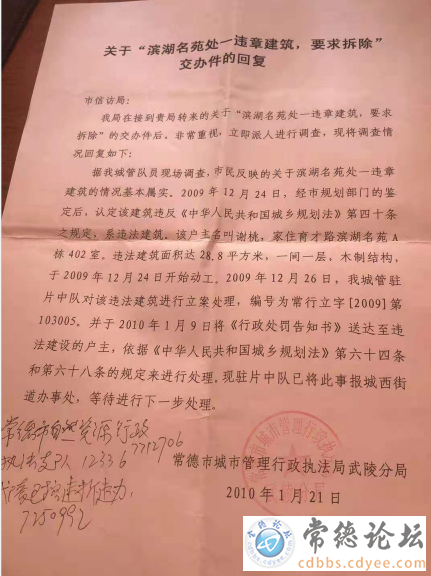 关于“滨湖名苑处一违章建筑，要求拆除”
交办件的回复
市信访局：
我局在接到贵局转来的关于“滨湖名苑处一违章建筑，要求
拆除”的交办件后。非常重视，立即派人进行调查，现将调查情
况回复如下：
据我城管队员现场调查，市民反映的关于滨湖名苑处一违章
建筑的情况基本属实。2009年12月24日，经市规划部门的鉴
定后，认定该建筑违反《中华人民共和国城乡规划法》第四十条
之规定，系违法建筑。该户主名叫谢桃，家住育才路滨湖名苑A
栋402室。违法建筑面积达28.8平方米，一间一层，木制结构，
于2009年12月24日开始动工。2009年12月26日，我城管驻
片中队对该违法建筑进行立案处理，编号为常行立字[2009]第
103005。并于2010年1月9日将《行政处罚告知书》送达至违
法建设的户主，依据《中华人民共和国城乡规划法》第六十四条
和第六十八条的规定来进行处理。现驻片中队已将此事报城西街
道办事处，等待进行下一步处理。
常德市自然资源行政
执法支队 12336 7712706
武陵区控违拆违办
7250992
常德市城市管理行政执法局武陵分局
2010年1月21日
常德论坛
cdbbs.cdyee.com